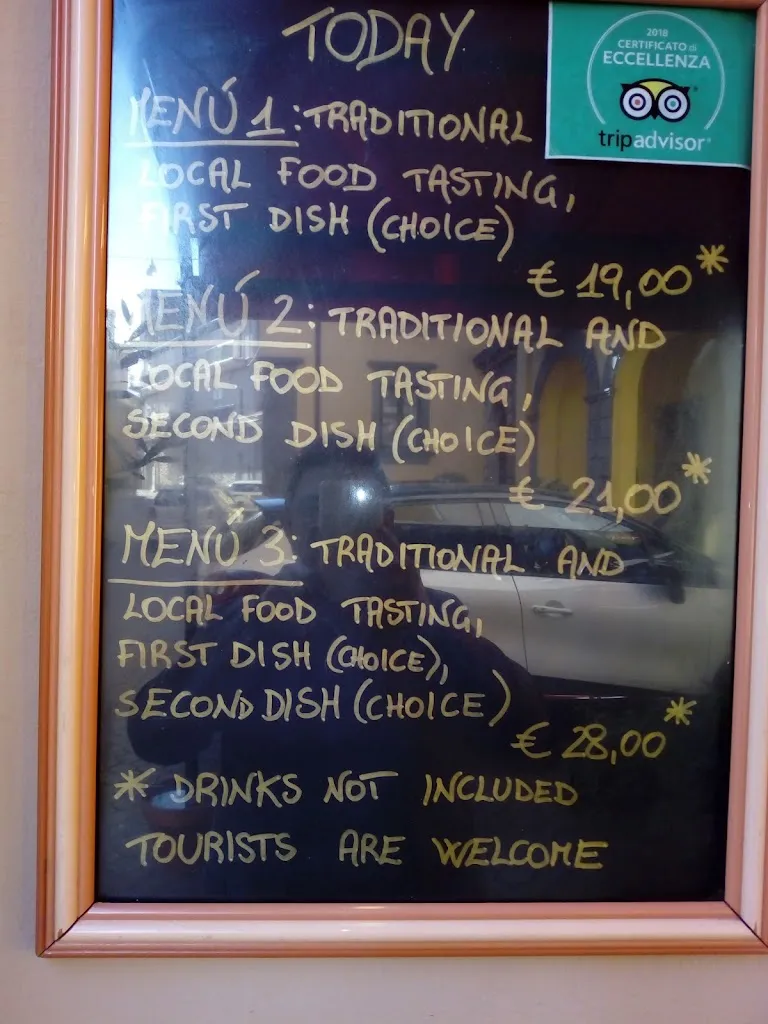 TODAY
2018
CERTIFICATO di
ECCELLENZA
tripadvisor®
MENÚ 1: TRADITIONAL
LOCAL FOOD TASTING,
FIRST DISH (CHOICE)
€ 19,00*
MENÚ 2: TRADITIONAL AND
LOCAL FOOD TASTING,
SECOND DISH (CHOICE)
€ 21,00*
MENÚ 3: TRADITIONAL AND
LOCAL FOOD TASTING,
FIRST DISH (CHOICE),
SECOND DISH (CHOICE)
€ 28,00*
* DRINKS NOT INCLUDED
TOURISTS ARE WELCOME